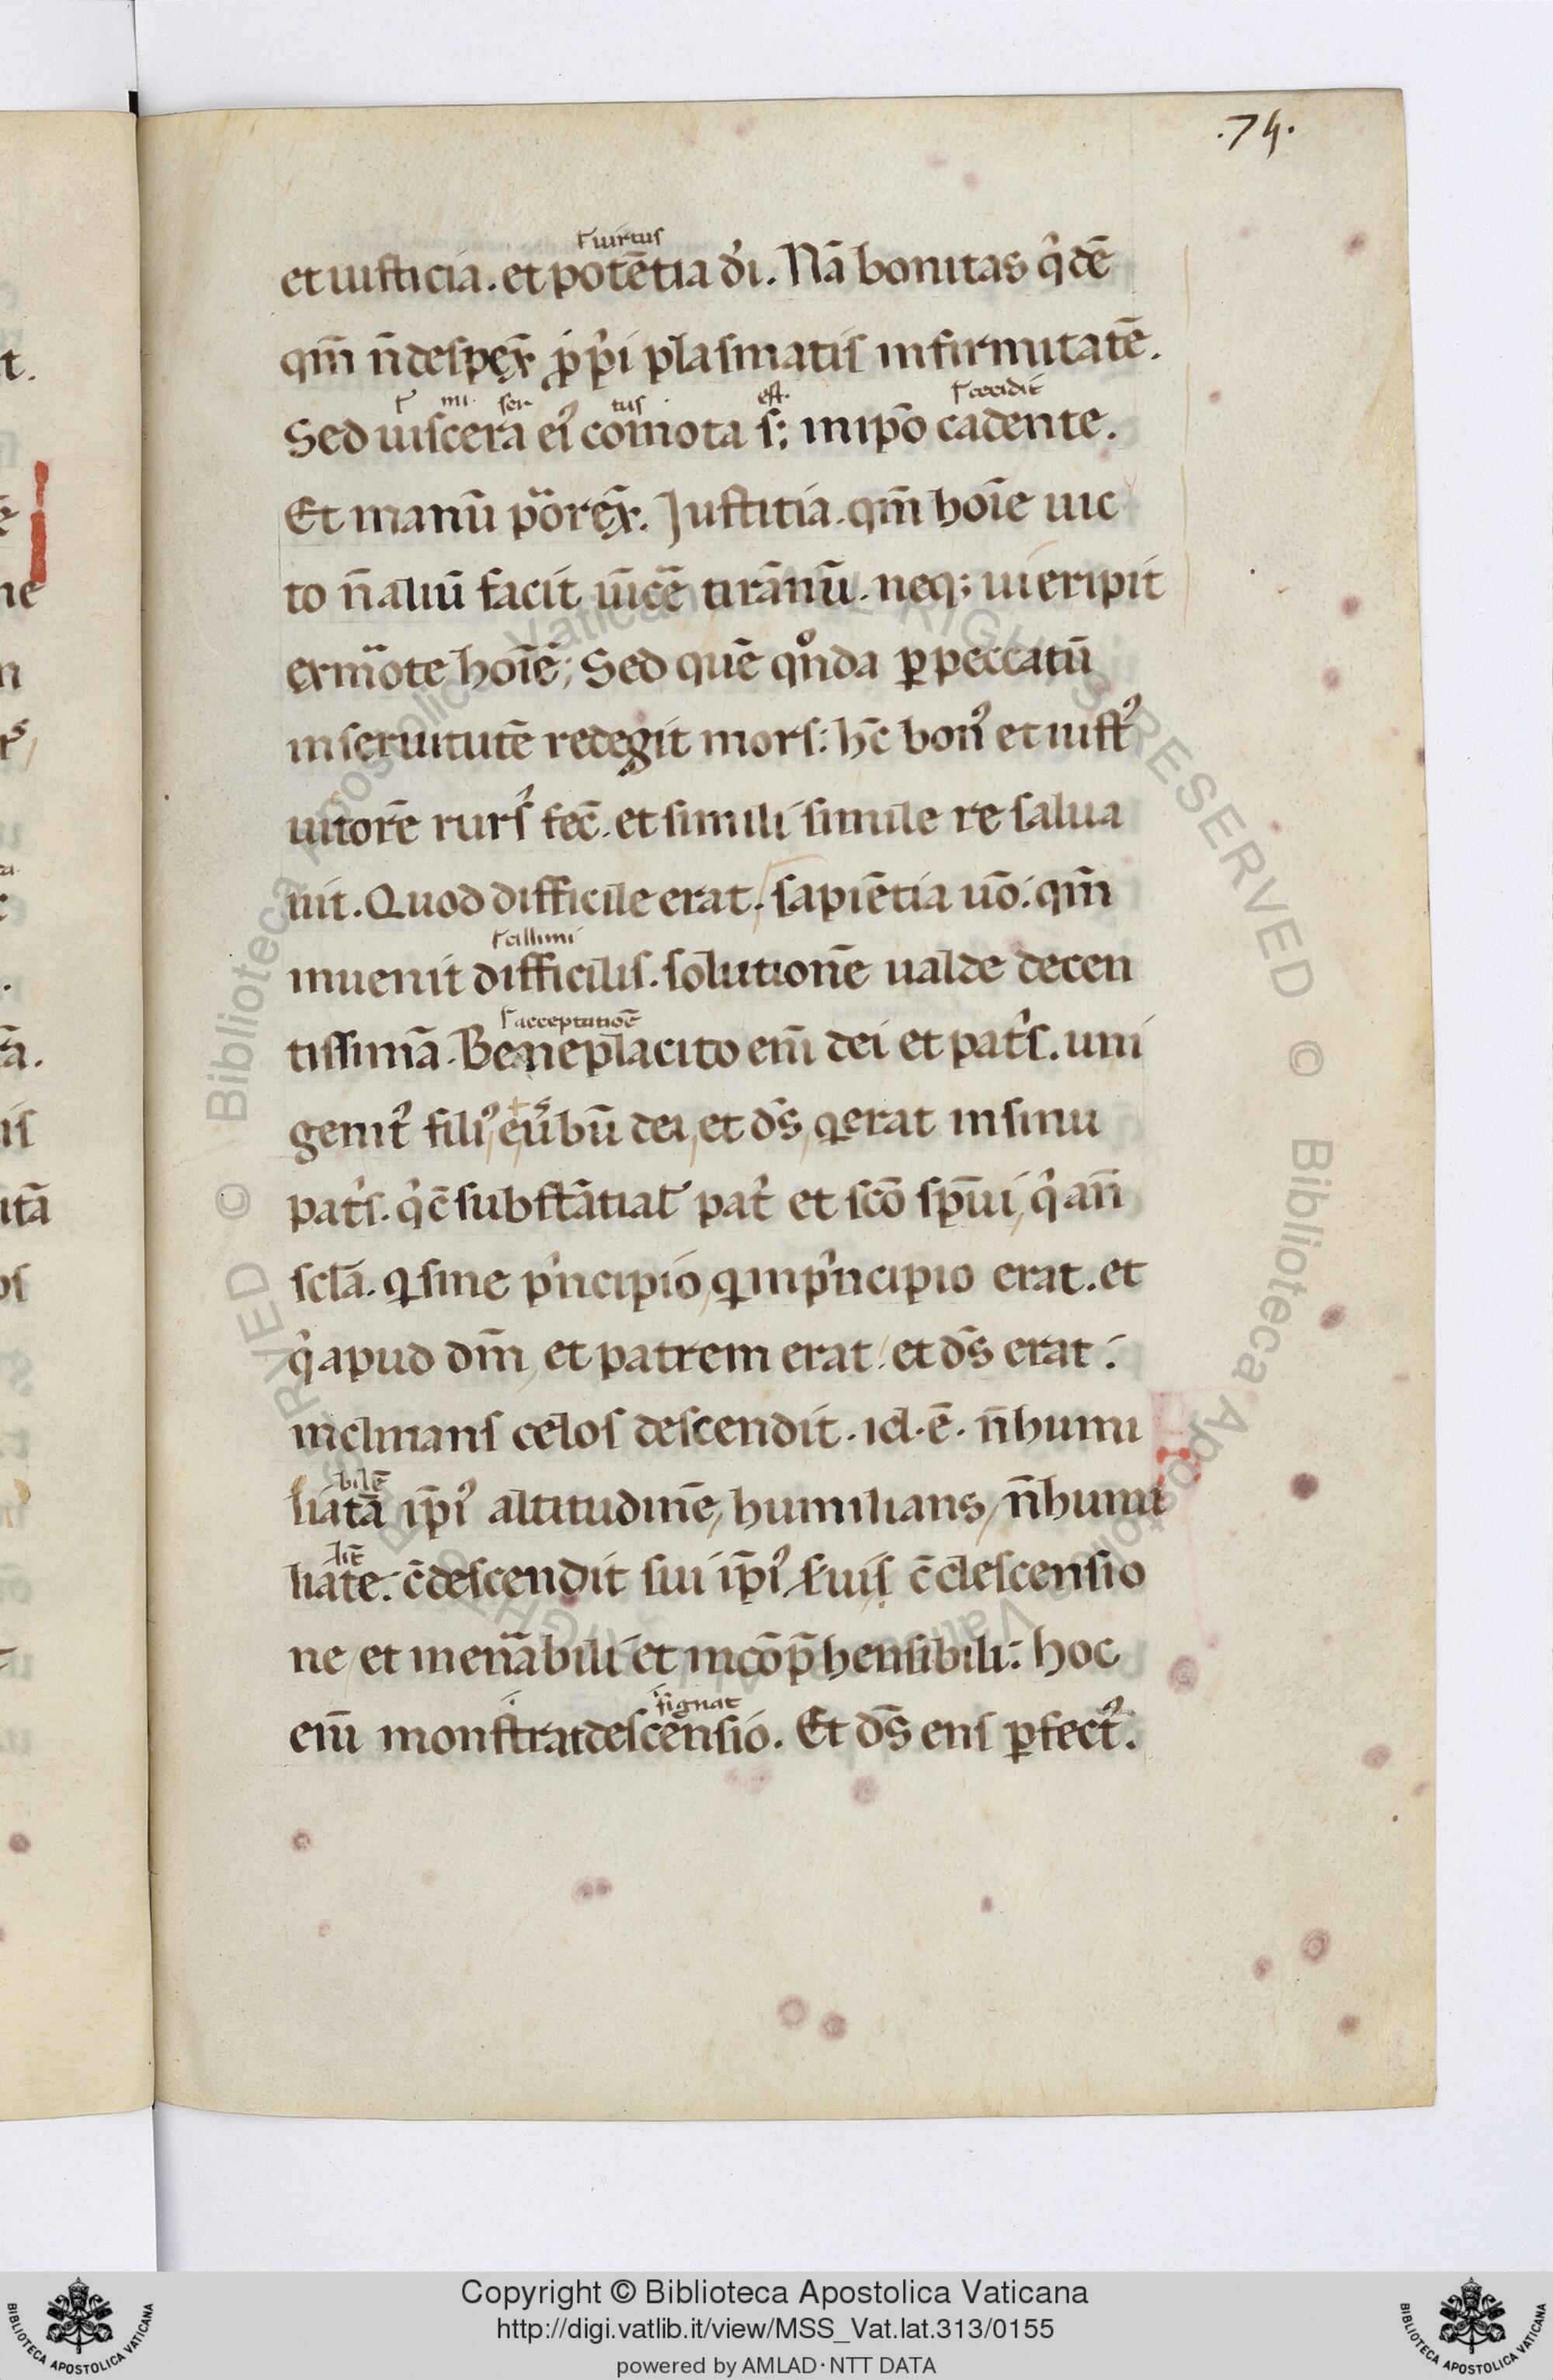 .74.
r uirtus
et iusticia. et potētia dı̓. Nā bonitas qͥdē
qm̄ n̄ despex̄ ꝓpͥi plasmatis infirmitatē.
r mi. ser tus est. r cecidit
Sed uiscera eiꝰ cōmota s̄; in ip̄o cadente.
Et manū porex̄. Justitia. qm̄ hoīe uic
to n̄ aliū facit uīcē tirānū. neq; ui eripit
ex morte hoīē; Sed quē qn̊da ꝑ peccatū
in seruitutē redegit mors: hc̄ bonꝰ et iustꝰ
uitorē rursꝰ fec̄. et simili simile re salua
uit. Quod difficile erat. sapiētia uō: qm̄
r cillimi
inuenit difficilis. solutionē ualde decen
r acceptatiōē
tissimā. Beneplacito em̄ dei et patͥs. uni
genitꝰ filiꝰ, et ūbū dei, et ds̄, q erat in sinu
patͥs. qͥ c̄substātialˀ patͥ et scō sp̄ui, qͥ an̄
scl̄a. q sine pͥncipio, q in pͥncipio erat. et
qͥ apud dm̄, et patrem erat. et ds̄ erat:
inclinans celos descendit. id. ē. n̄ humi
bilē
liatā ip̄iꝰ altitudinē, humilians, n̄ humi
lit̄
liate. c̄descendit sui ip̄iꝰ suis c̄descensio
ne et inenābili et incōp̄hensibili: hoc
i signat
em̄ monstrat descēnsio. Et ds̄ ens ꝑfectꝰ.
Copyright © Biblioteca Apostolica Vaticana
http://digi.vatlib.it/view/MSS_Vat.lat.313/0155
powered by AMLAD·NTT DATA
BIBLIOTECA APOSTOLICA VATICANA
BIBLIOTECA APOSTOLICA VATICANA